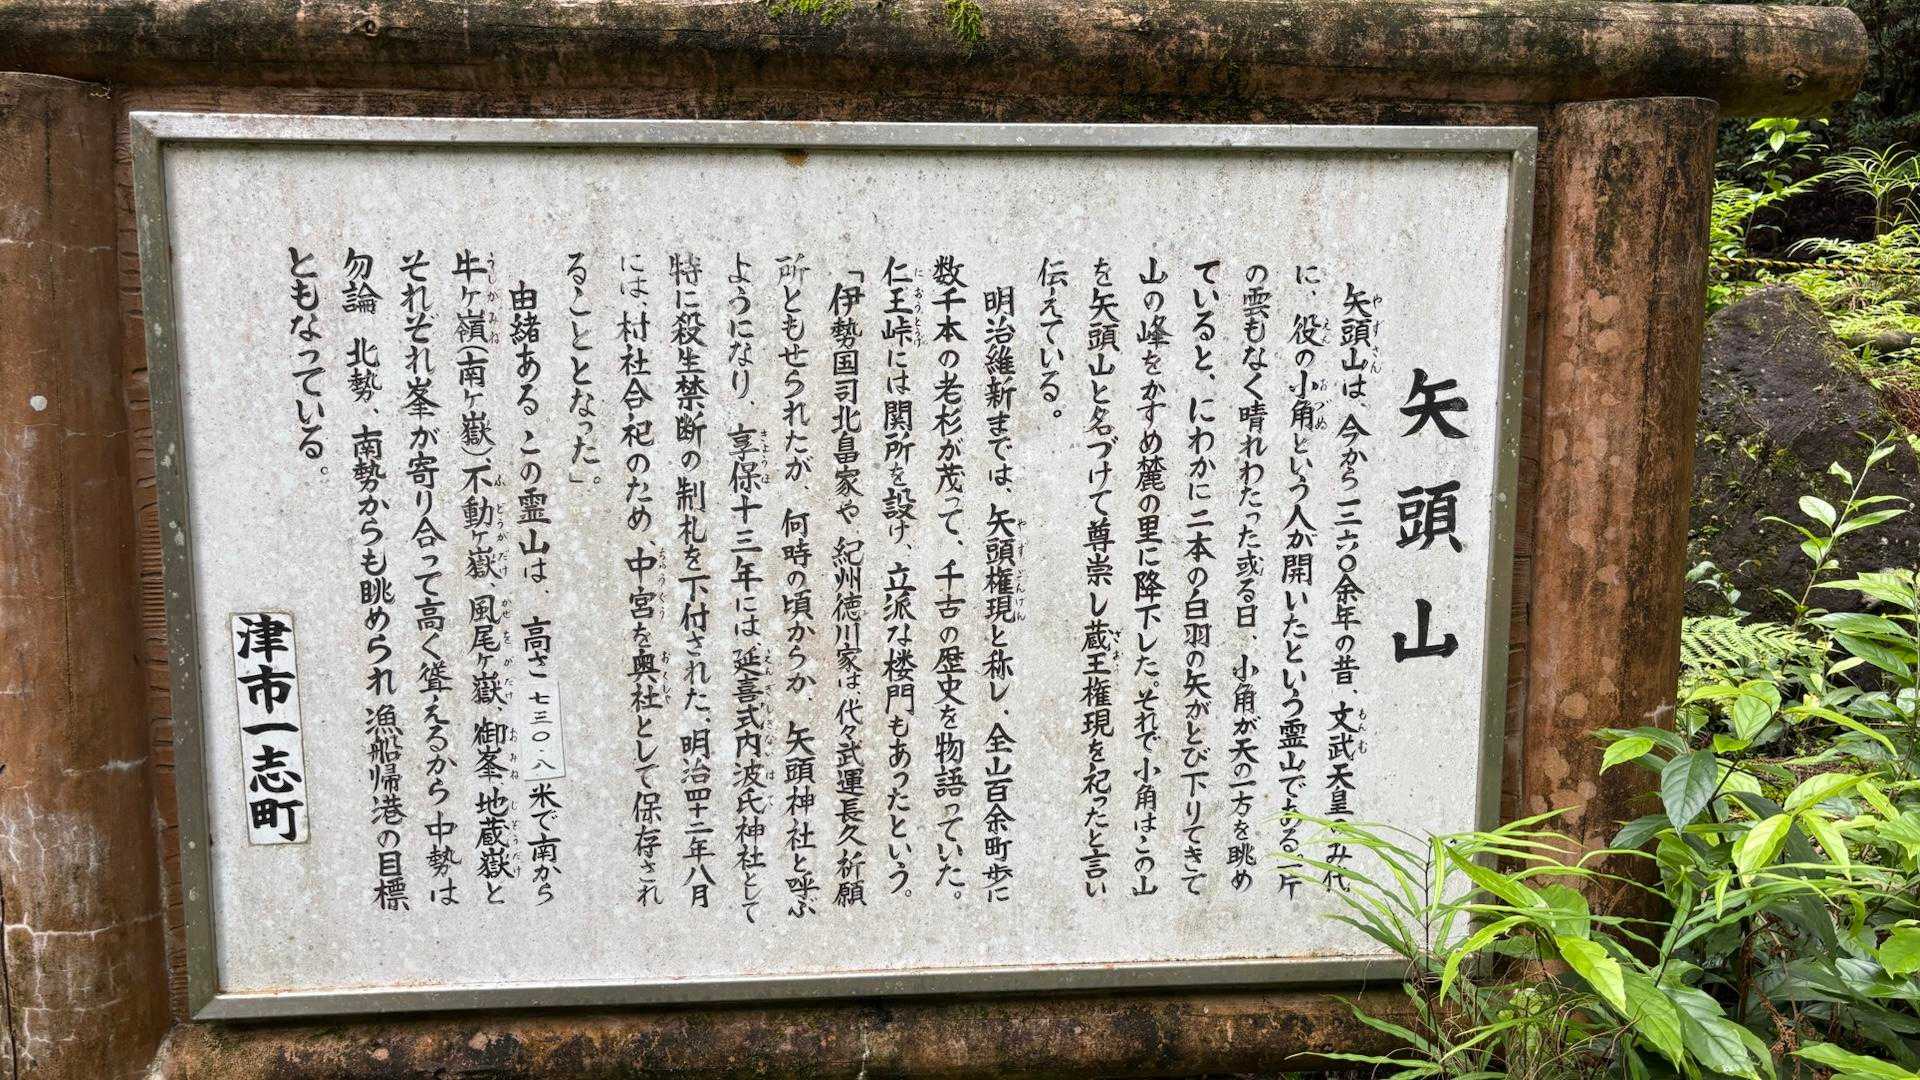 矢頭山
矢頭山は、今から一三六〇余年の昔、文武天皇のみ代
に、役の小角という人が開いたという霊山である。一ケ
の雲もなく晴れわたった或る日、小角が天の一方を眺め
ていると、にわかに二本の白羽の矢がとび下りてきて
山の峰をかすめ麓の里に降下した。それで小角はこの山
を矢頭山と名づけて尊崇し蔵王権現を祀ったと言い
伝えている。
明治維新までは、矢頭権現と称し、全山百余町歩に
数千本の老杉が茂って、千古の歴史を物語っていた。
仁王峠には関所を設け、立派な楼門もあったという。
「伊勢国司北畠家や、紀州徳川家は、代々武運長久祈願
所ともせられたが、何時の頃からか、矢頭神社と呼ぶ
ようになり、享保十三年には、延喜式内波氐神社として
特に殺生禁断の制札を下付された、明治四十二年八月
には、村社合祀のため、中宮を奥社として保存され
ることとなった」。
由緒ある、この霊山は、高さ七三〇.八米で南から
牛ヶ嶺(南ヶ嶽)、不動ヶ嶽、風尾ヶ嶽、御峯、地蔵嶽と
それぞれ峯が寄り合って高く聳えるから中勢は
勿論 北勢、南勢からも眺められ 漁船帰港の目標
ともなっている。
津市一志町